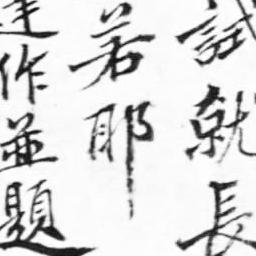 試就長
若耶
作並題